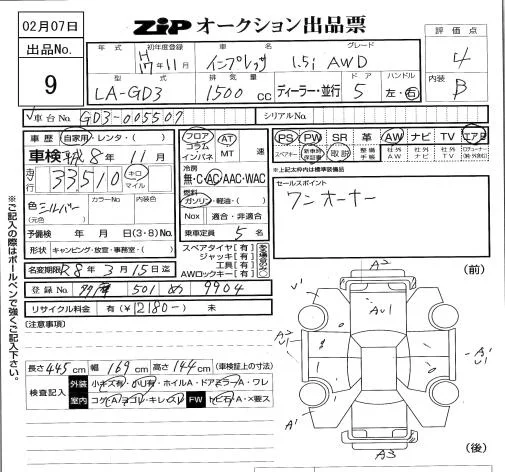 02月07日
出品No.
9
ZIP オークション出品票
評価点
4
内装
B
年式 初年度登録 車名 グレード
H17年11月 インプレッサ 1.5i AWD
型式 排気量 ドア ハンドル
LA-GD3 1500cc ディーラー・並行 5 左・右
車台No. GD3-005507 シリアルNo.
車歴 自家用・レンタ・( )
車検 8年11月
走行 33510 キロ マイル
色 シルバー カラーNo. 内装色
(元色)
予備検 年 月 日(3・8)No.
形状 キャンピング・放宣・事務室・( )
名変期限 R8年3月15日迄
登録No. 多摩 501 め 9904
リサイクル料金 有(¥12180-) 未
フロア コラム インパネ AT MT 速
冷房
無・C・AC・AAC・WAC
燃料
ガソリン・軽油・( )
Nox 適合・非適合
乗車定員 5名
スペアタイヤ[有]
ジャッキ[有]
工具[有]
AWロックキー[有]
ある場合のみ○
PS PW SR 革 AW ナビ TV エアB
スペアキー 新車時保証書 取説 整備手帳 社外AW 社外ナビ 社外TV
※上記太枠内は標準装備品
セールスポイント
ワンオーナー
※ご記入の際はボールペンで強くご記入下さい。
(注意事項)
長さ445cm 幅169cm 高さ144cm (車検証上の寸法)
検査記入 外装 小キズ有・小U有・ホイルA・ドアミラーA・ワレ
室内 コゲ(A)ヨゴレ・キレ・スレ FW トビ石A・×要ス
(前)
A2
AU1
A2
U1
A1
U1
A1
A3
(後)